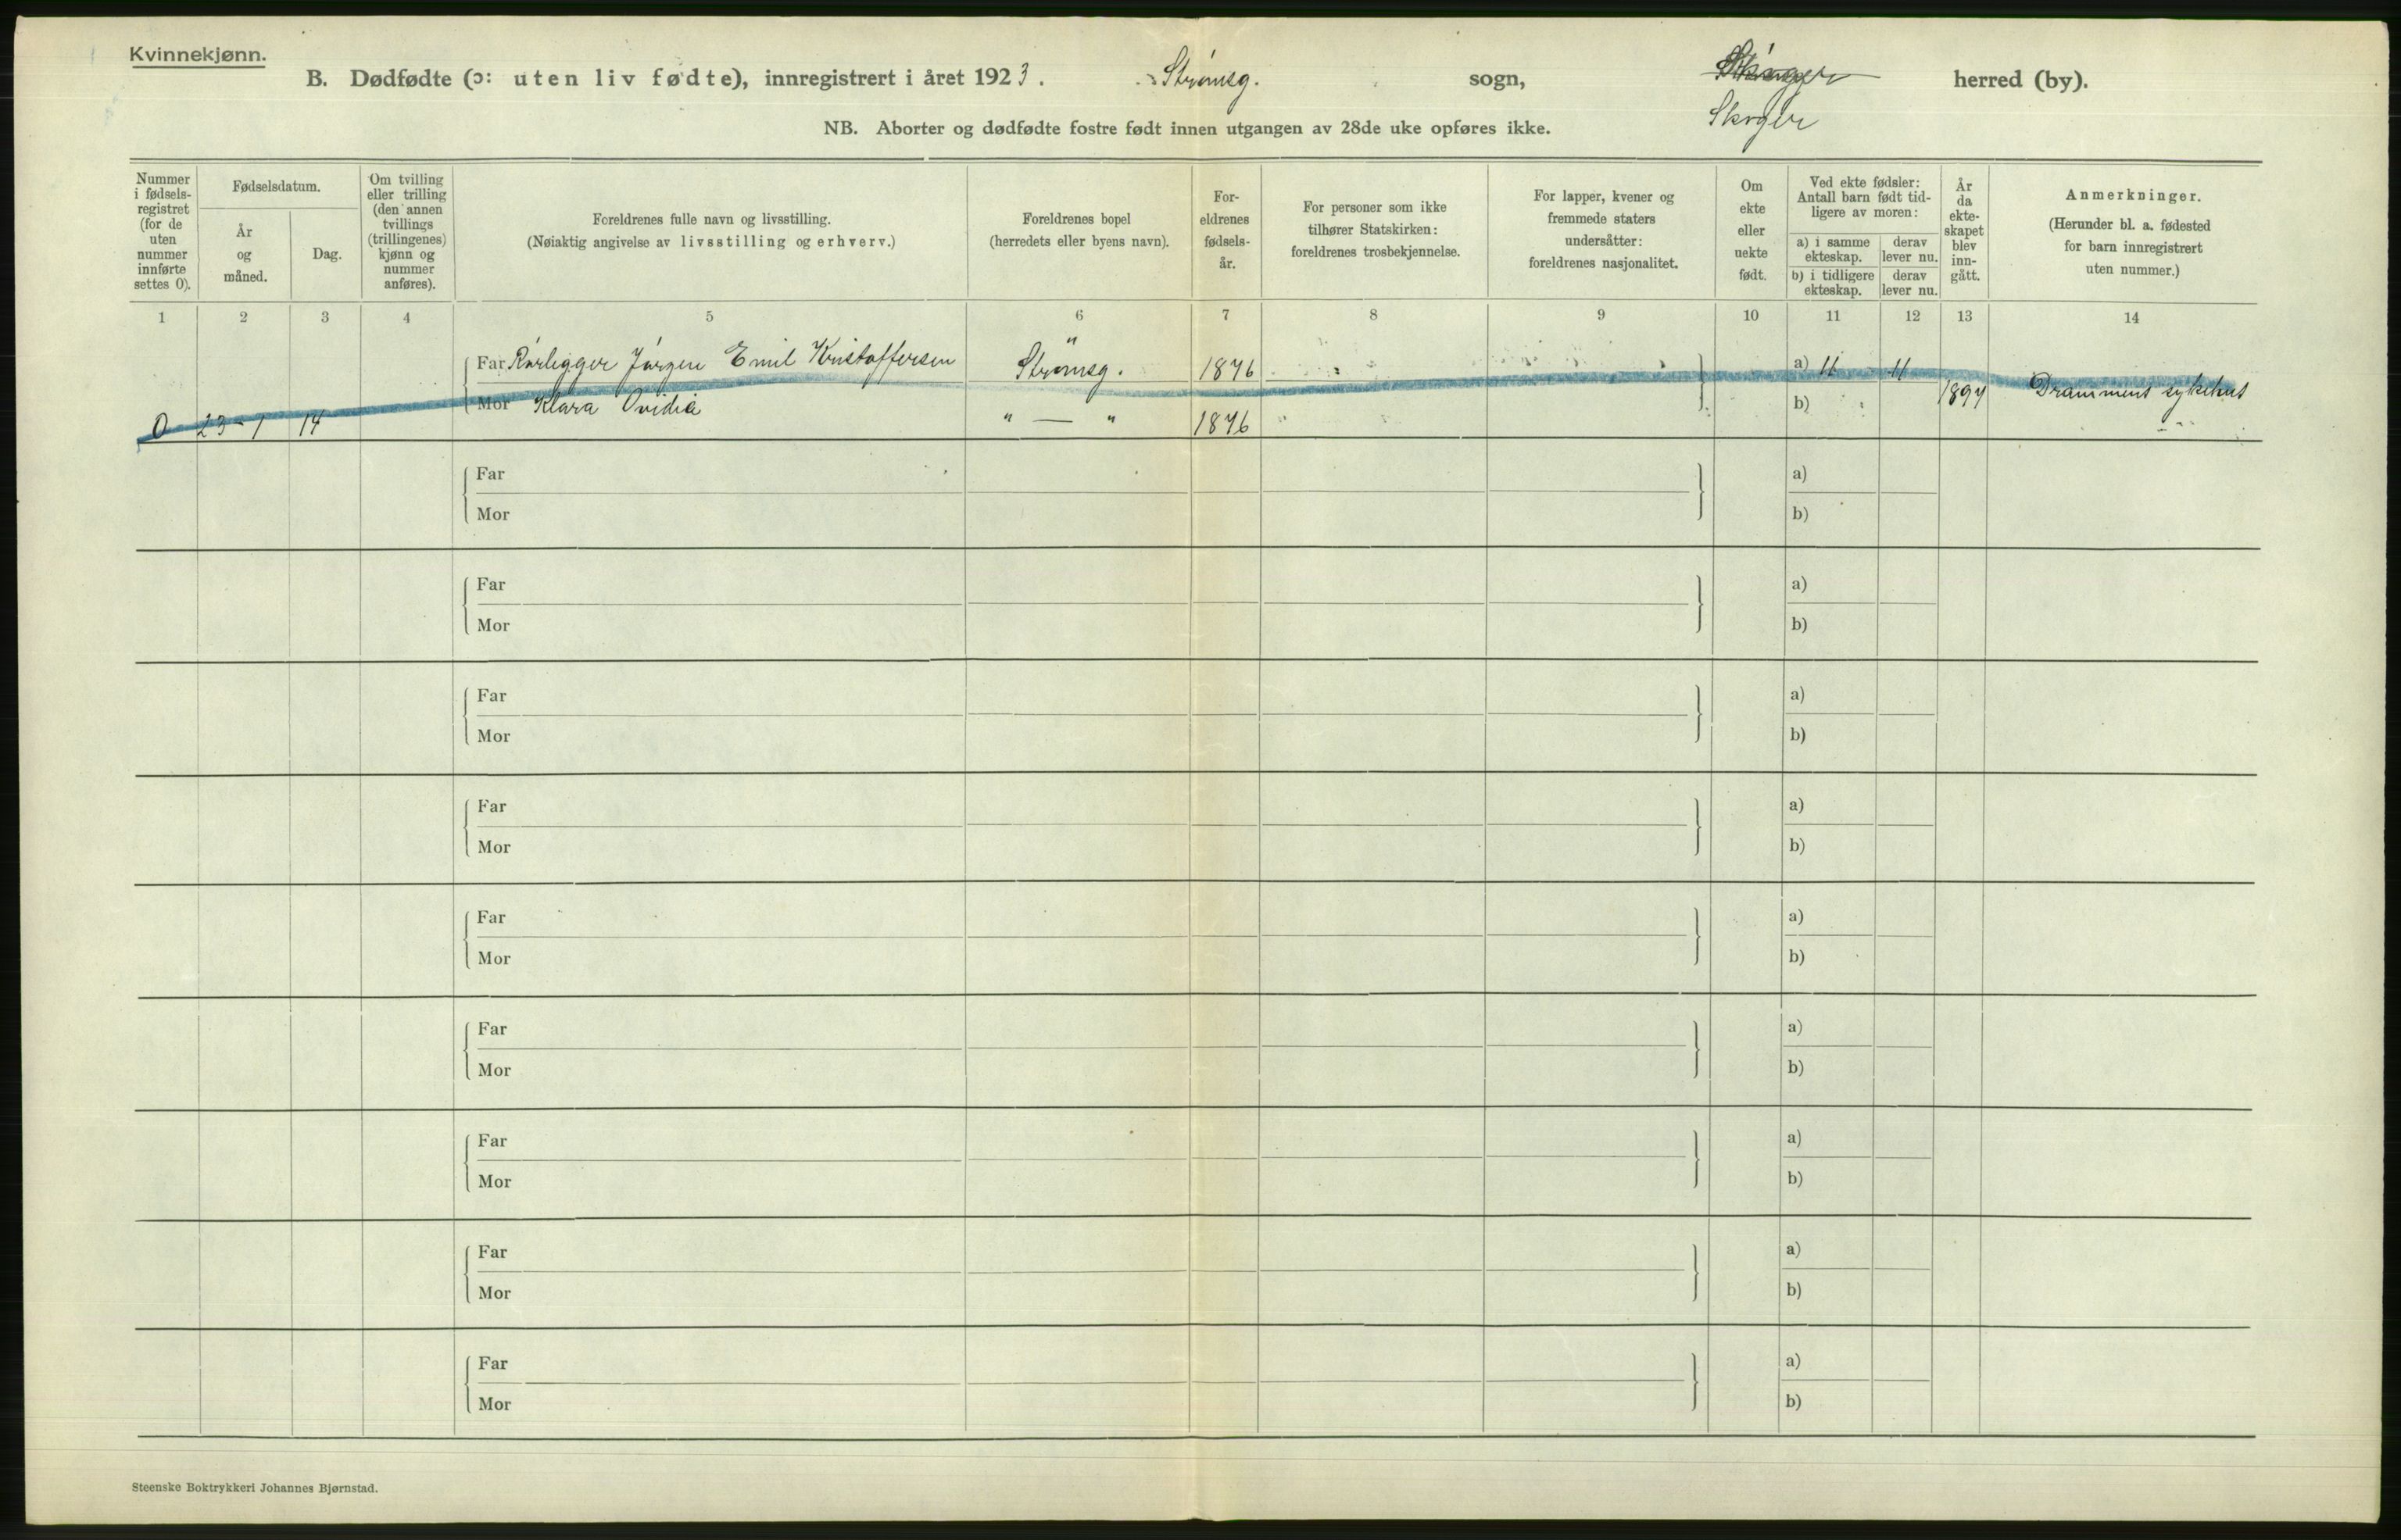 Kvinnekjønn.
B. Dødfødte (ɔ: uten liv fødte), innregistrert i året 1923. Strømsg. sogn, Skoger herred (by).
Skoger
NB. Aborter og dødfødte fostre født innen utgangen av 28de uke opføres ikke.
Nummer i fødsels- registret (for de uten nummer innførte settes 0).
Fødselsdatum.
År og måned.
Dag.
Om tvilling eller trilling (den annen tvillings (trillingenes) kjønn og nummer anføres).
Foreldrenes fulle navn og livsstilling.
(Nøiaktig angivelse av livsstilling og erhverv.)
Foreldrenes bopel
(herredets eller byens navn).
For- eldrenes fødsels- år.
For personer som ikke tilhører Statskirken: foreldrenes trosbekjennelse.
For lapper, kvener og fremmede staters undersåtter: foreldrenes nasjonalitet.
Om ekte eller uekte født.
Ved ekte fødsler: Antall barn født tid- ligere av moren:
a) i samme ekteskap.
derav lever nu.
b) i tidligere ekteskap.
derav lever nu.
År da ekte- skapet blev inn- gått.
Anmerkninger.
(Herunder bl. a. fødested for barn innregistrert uten nummer.)
1 2 3 4 5 6 7 8 9 10 11 12 13 14
Far Rørlegger Jørgen Emil Kristoffersen Strømsg. 1876 a) 11 11
0 23-1 14 Mor Klara Ovidia " — " 1876 b) 1897 Drammens sykehus
Far a)
Mor b)
Far a)
Mor b)
Far a)
Mor b)
Far a)
Mor b)
Far a)
Mor b)
Far a)
Mor b)
Far a)
Mor b)
Far a)
Mor b)
Far a)
Mor b)
Steenske Boktrykkeri Johannes Bjørnstad.